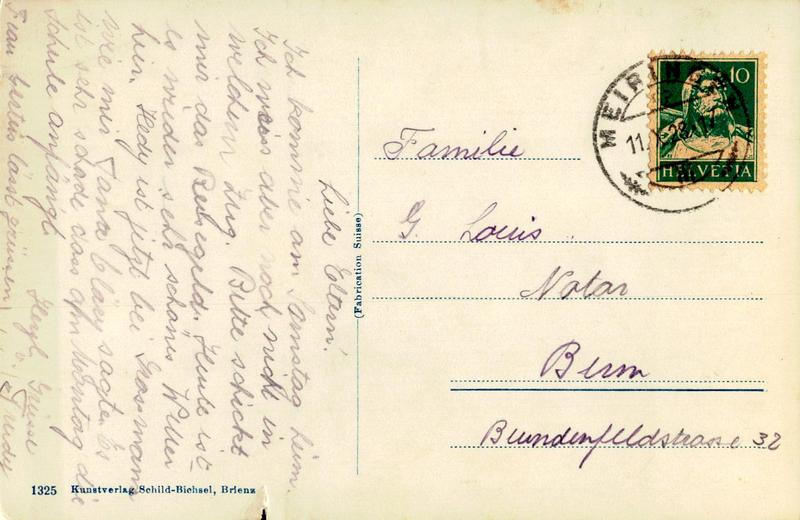 Liebe Eltern!
Ich komme am Samstag heim.
Ich weiss aber noch nicht in
welchem Zug. Bitte schickt
mir das Reisegeld. Heute ist
es wieder sehr schönes Wetter
hier. Hedy ist jetzt bei Grossmama
wie mir Tante Cläry sagte. Es
ist sehr schade dass am Montag die
Schule anfängt.
Herzl. Grüsse
Trudy
Frau lässt grüssen
(Fabrication Suisse)
1325 Kunstverlag Schild-Bichsel, Brienz
MEIRINGEN
11.
28.
10
HELVETIA
Familie
G. Louis
Notar
Bern
Bundenfeldstrasse 32